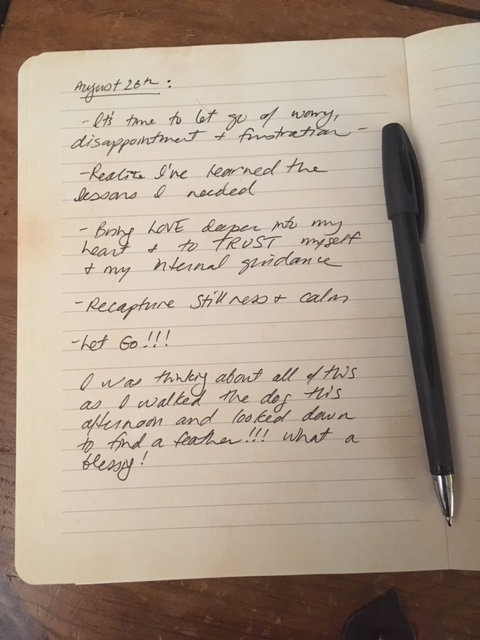 August 26th:
- It's time to let go of worry,
disappointment + frustration -
- Realize I've learned the
lessons I needed
- Bring LOVE deeper into my
heart + to TRUST myself
+ my internal guidance
- Recapture stillness + calm
- Let Go!!!
I was thinking about all of this
as I walked the dog this
afternoon and looked down
to find a feather!!! What a
blessing!